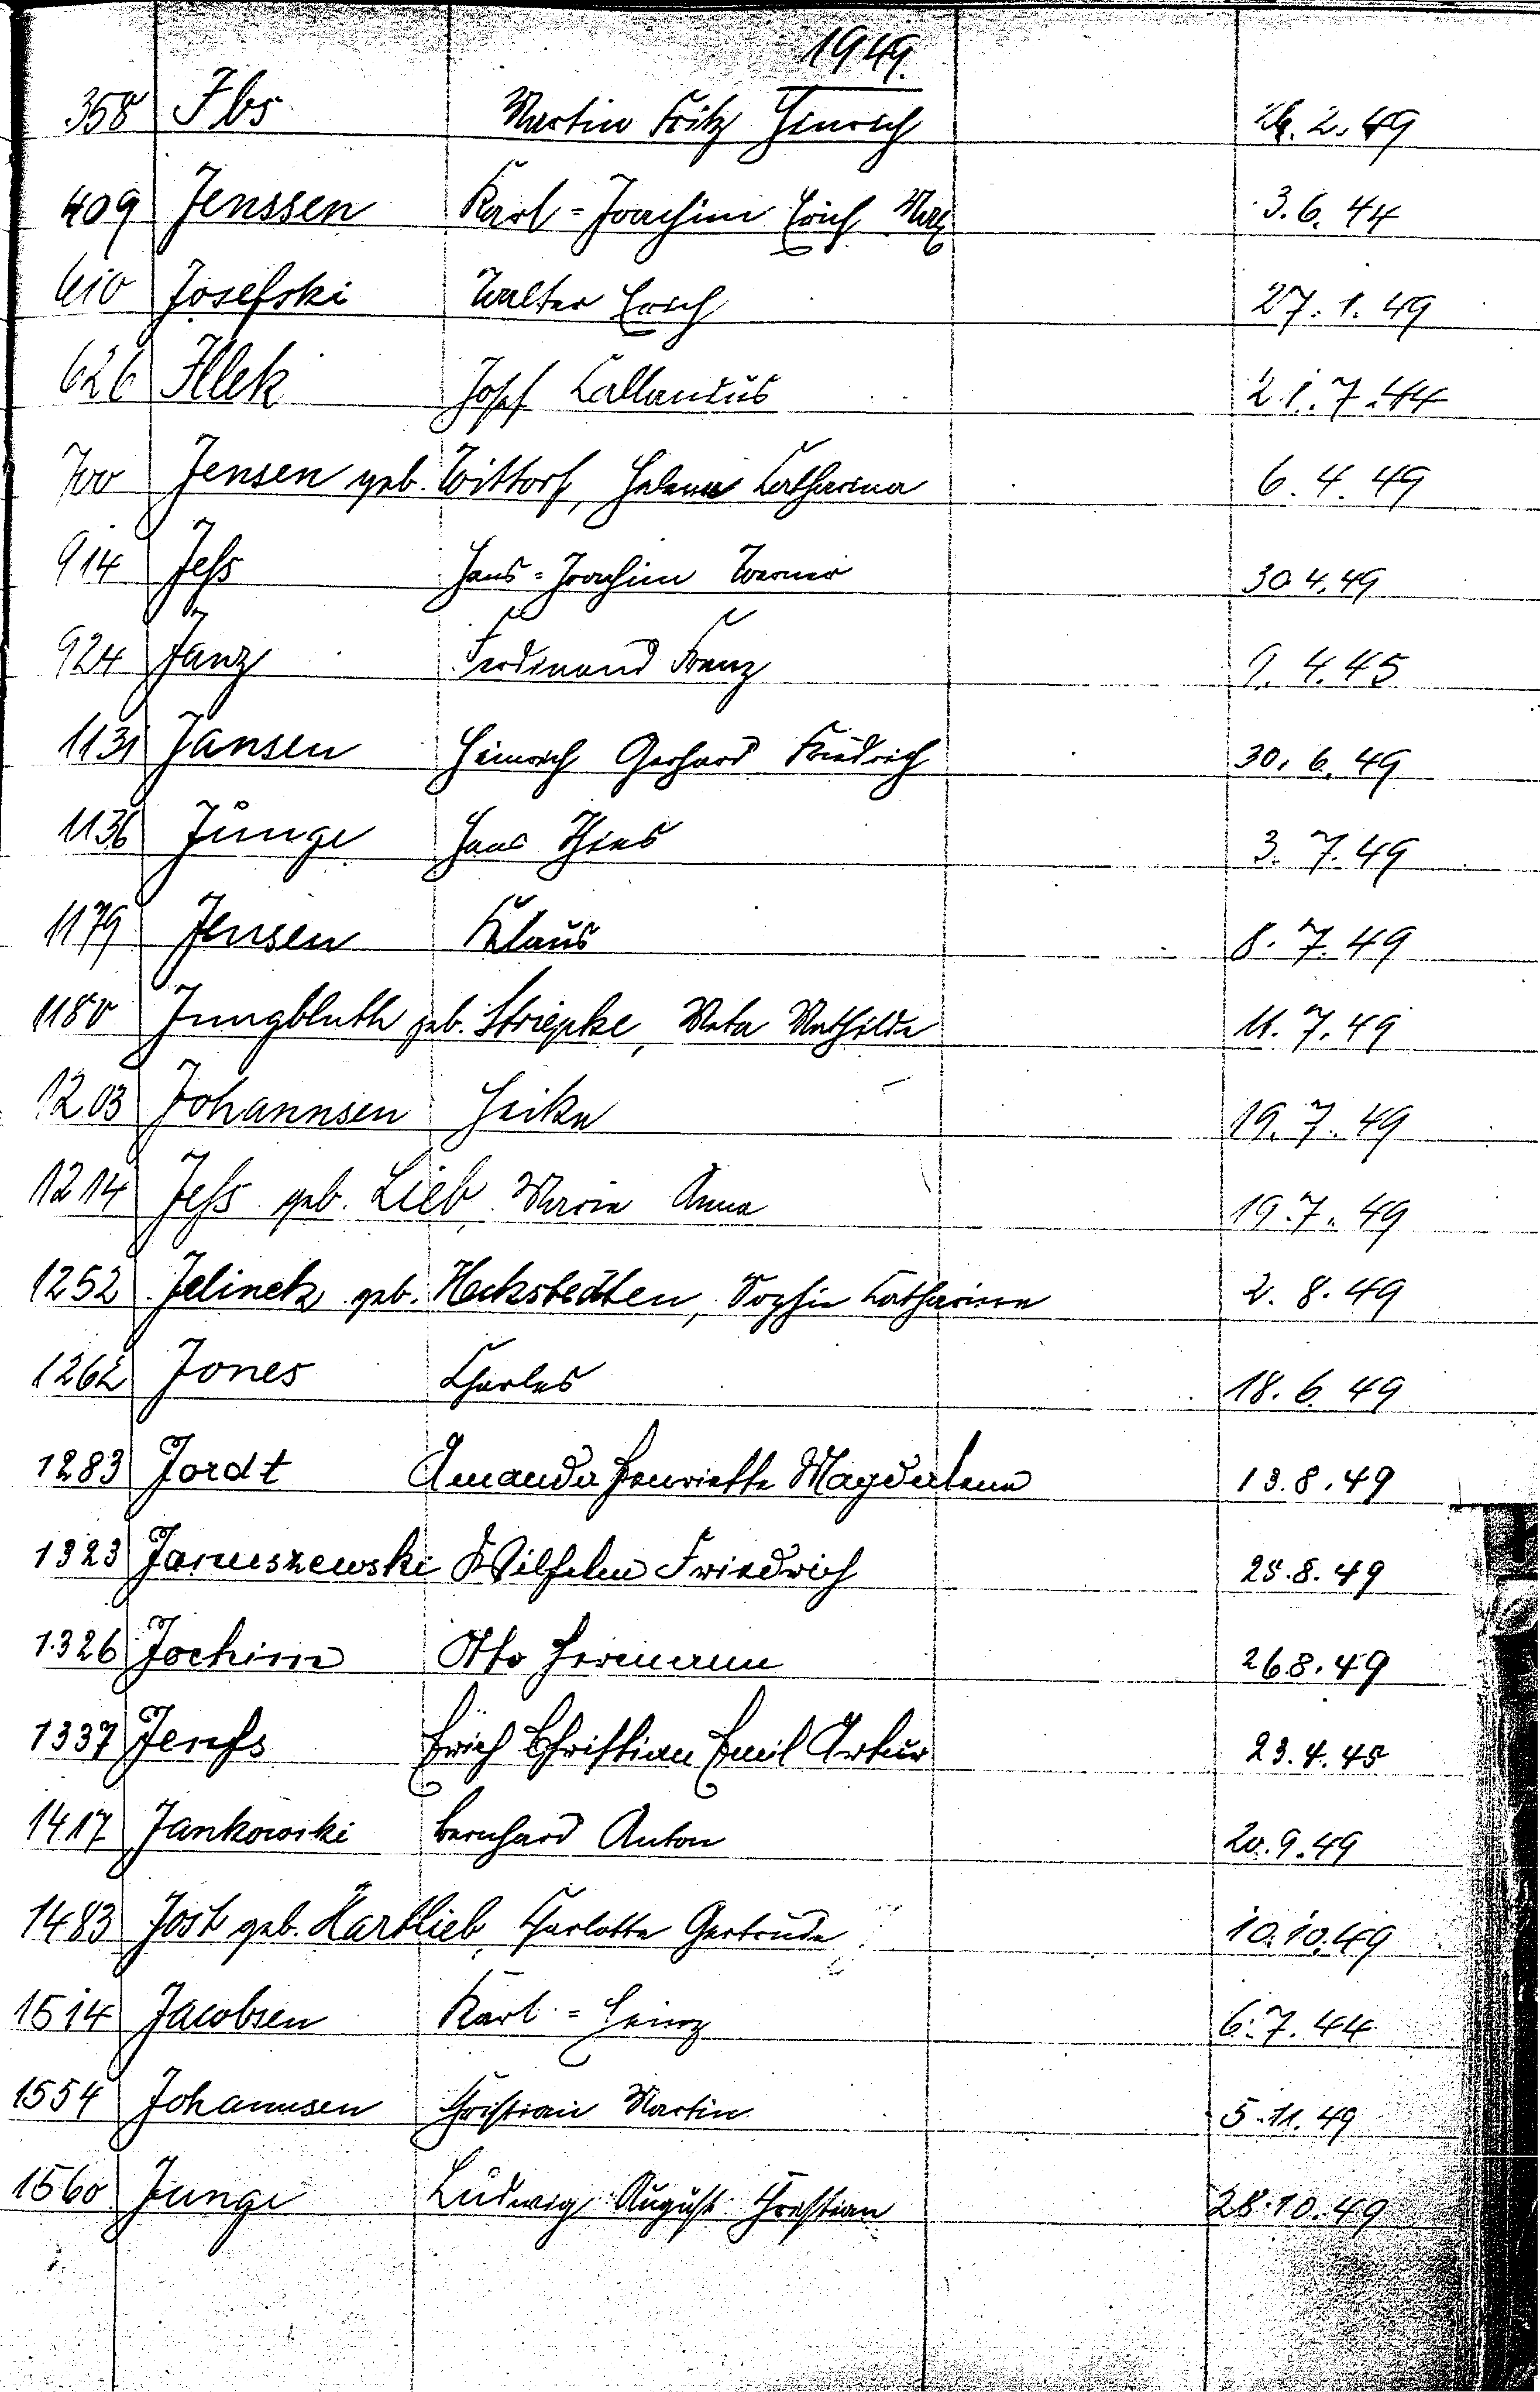 1949.
358 Ibs Martin Fritz Hinrich 2.49
409 Jenssen Karl=Joachim Erich Max 3.6.44
610 Josefski Walter Erich 27.1.49
626 Illek Josef 21.7.44
700 Jensen geb. Wittorf, Helene Catharina 6.4.49
914 Jeß Hans=Joachim Werner 30.4.49
924 Janz Ferdinand Franz 9.4.45
1131 Jansen Heinrich Gerhard Friedrich 30.6.49
1136 Junge Hans Thies 3.7.49
1179 Jensen Klaus 8.7.49
1180 Jungbluth geb. Striepke, Meta Mathilde 11.7.49
1203 Johannsen Heike 19.7.49
1214 Jeß geb. Lieb, Maria Anna 19.7.49
1252 Jelinek geb. Heckstedten, Sophie Catharina 2.8.49
1262 Jones Charles 18.6.49
1283 Jordt Amanda Henriette Magdalena 13.8.49
1323 Januszewski Wilhelm Friedrich 25.8.49
1326 Jochim Otto Hermann 26.8.49
1337 Jenß Erich Christian Emil Artur 23.4.45
1417 Jankowski Bernhard Anton 20.9.49
1483 Jost geb. Hartlieb, Charlotte Gertrude 10.10.49
1514 Jacobsen Karl=Heinz 6.7.44
1554 Johannsen Christian Martin 5.11.49
1560 Junge Ludwig August Christian 28.10.49